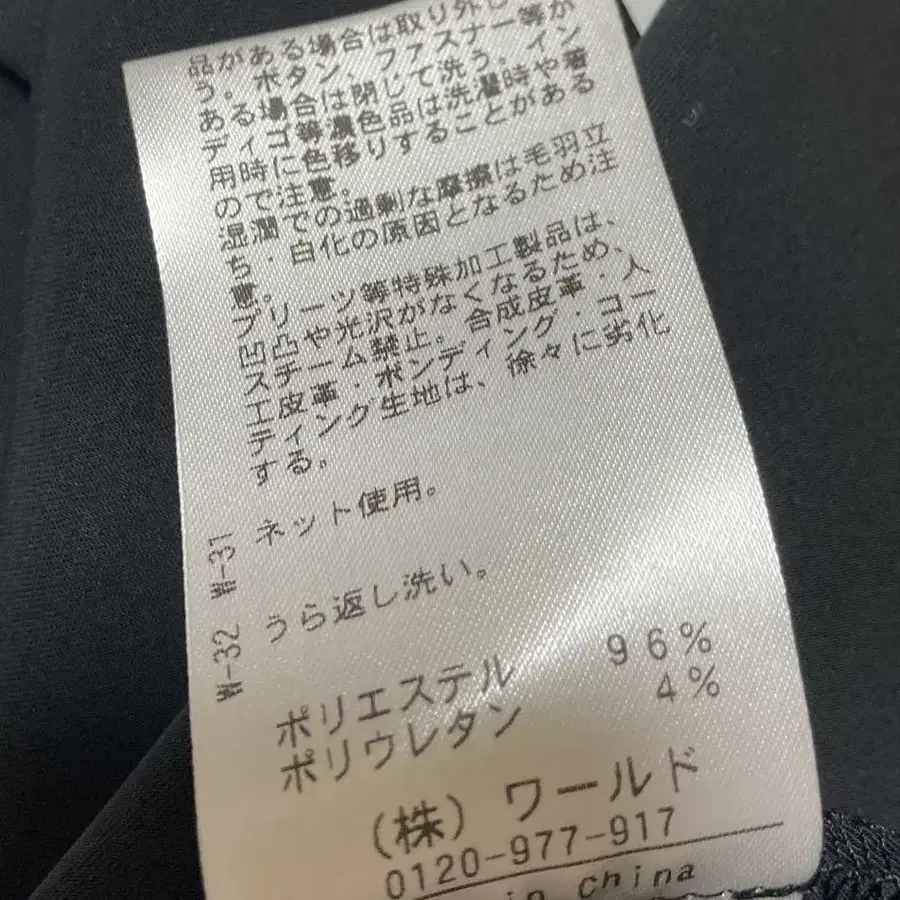 品がある場合は取り外し
う。ボタン、ファスナー等が
ある場合は閉じて洗う。イン
ディゴ等濃色品は洗濯時や着
用時に色移りすることがある
ので注意。
湿潤での過剰な摩擦は毛羽立
ち・白化の原因となるため注
意。
プリーツ等特殊加工製品は、
凹凸や光沢がなくなるため、
スチーム禁止。合成皮革・人
工皮革・ボンディング・コー
ティング生地は、徐々に劣化
する。
W-31 ネット使用。
W-32 うら返し洗い。
ポリエステル 96%
ポリウレタン 4%
(株) ワールド
0120-977-917
in China